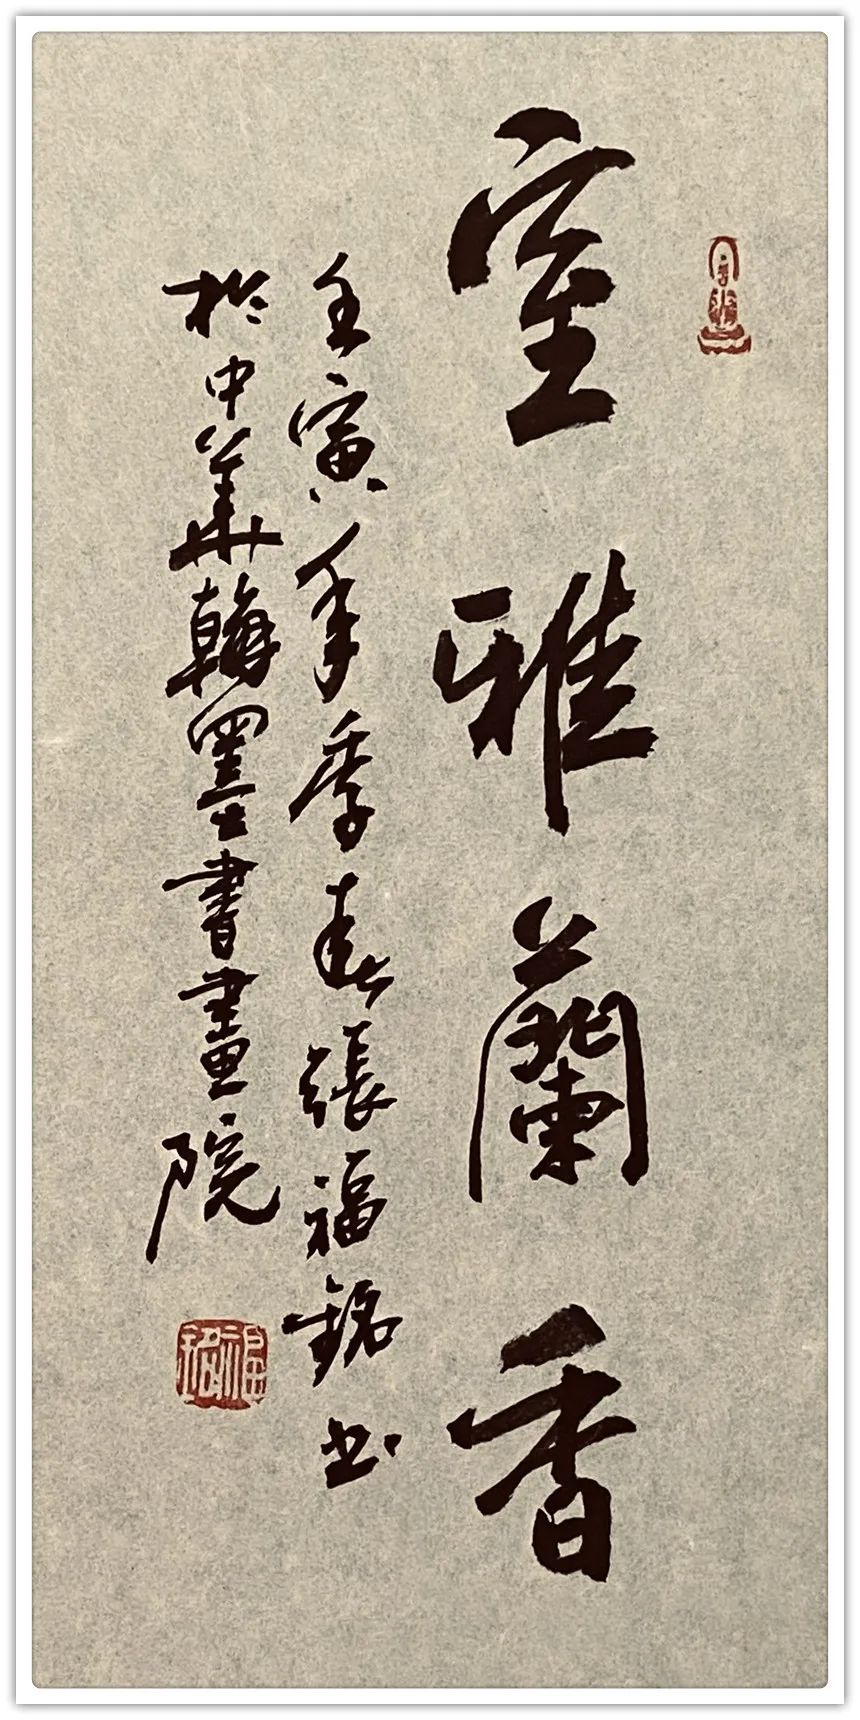 室雅蘭香
壬寅年季春張福銘书
於中華翰墨書畫院
福銘